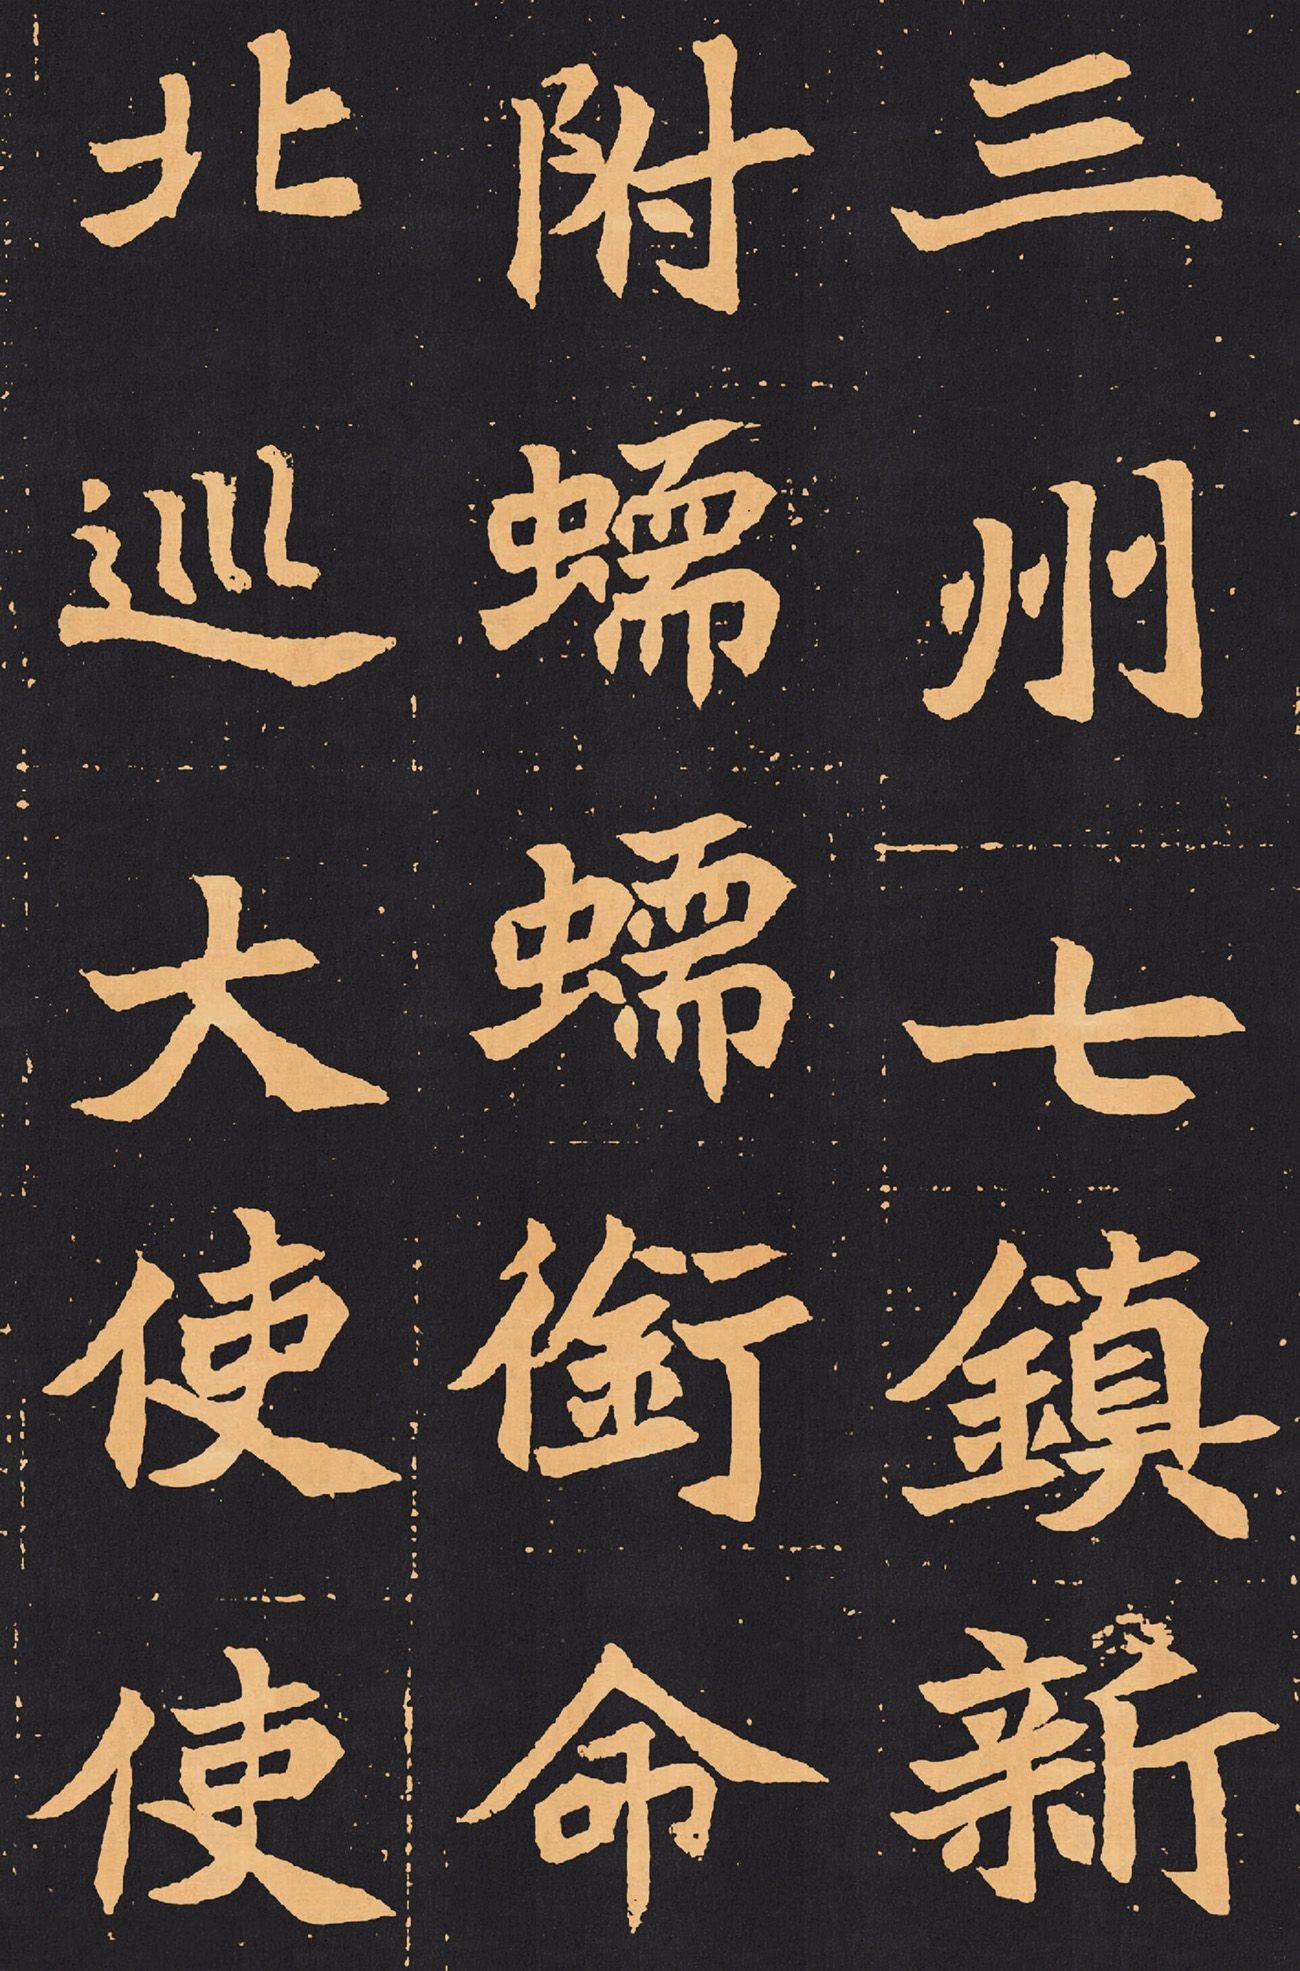 三州七鎮新
附蠕蠕銜命
北巡大使使